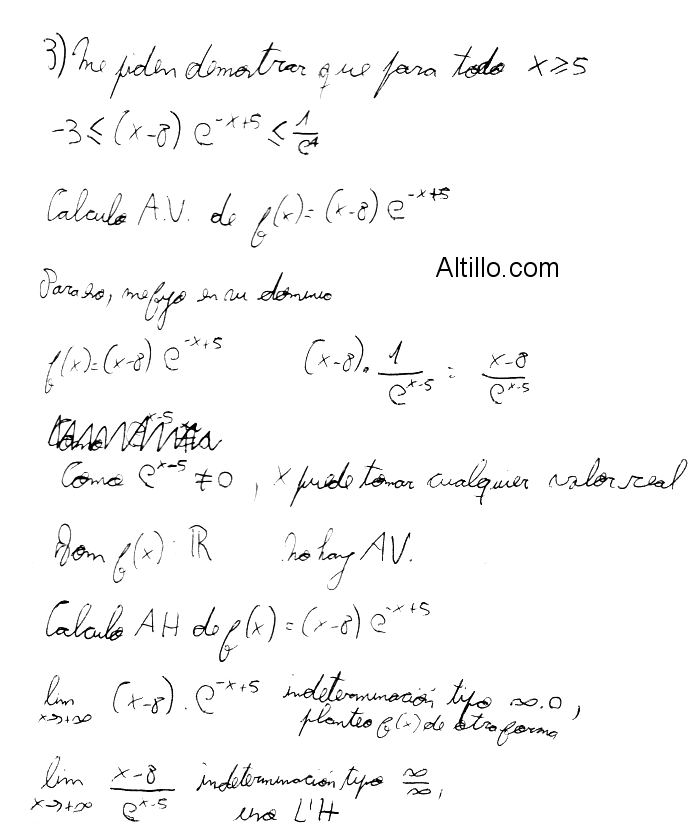 3) Me piden demostrar que para todo x ≥ 5
-3 ≤ (x-8) e^{-x+5} ≤ 1/e^4
Calculo A.V. de f(x) = (x-8) e^{-x+5}
Altillo.com
Para eso, me fijo en su dominio
f(x) = (x-8) e^{-x+5} (x-8) · 1/e^{x-5} = x-8/e^{x-5}
Como e^{x-5} ≠ 0, x puede tomar cualquier valor real
Dom f(x): ℝ No hay AV.
Calculo AH de f(x) = (x-8) e^{-x+5}
lim x→+∞ (x-8) . e^{-x+5} indeterminación tipo ∞.0,
planteo f(x) de otra forma
lim x→+∞ x-8/e^{x-5} indeterminación tipo ∞/∞,
uso L'H